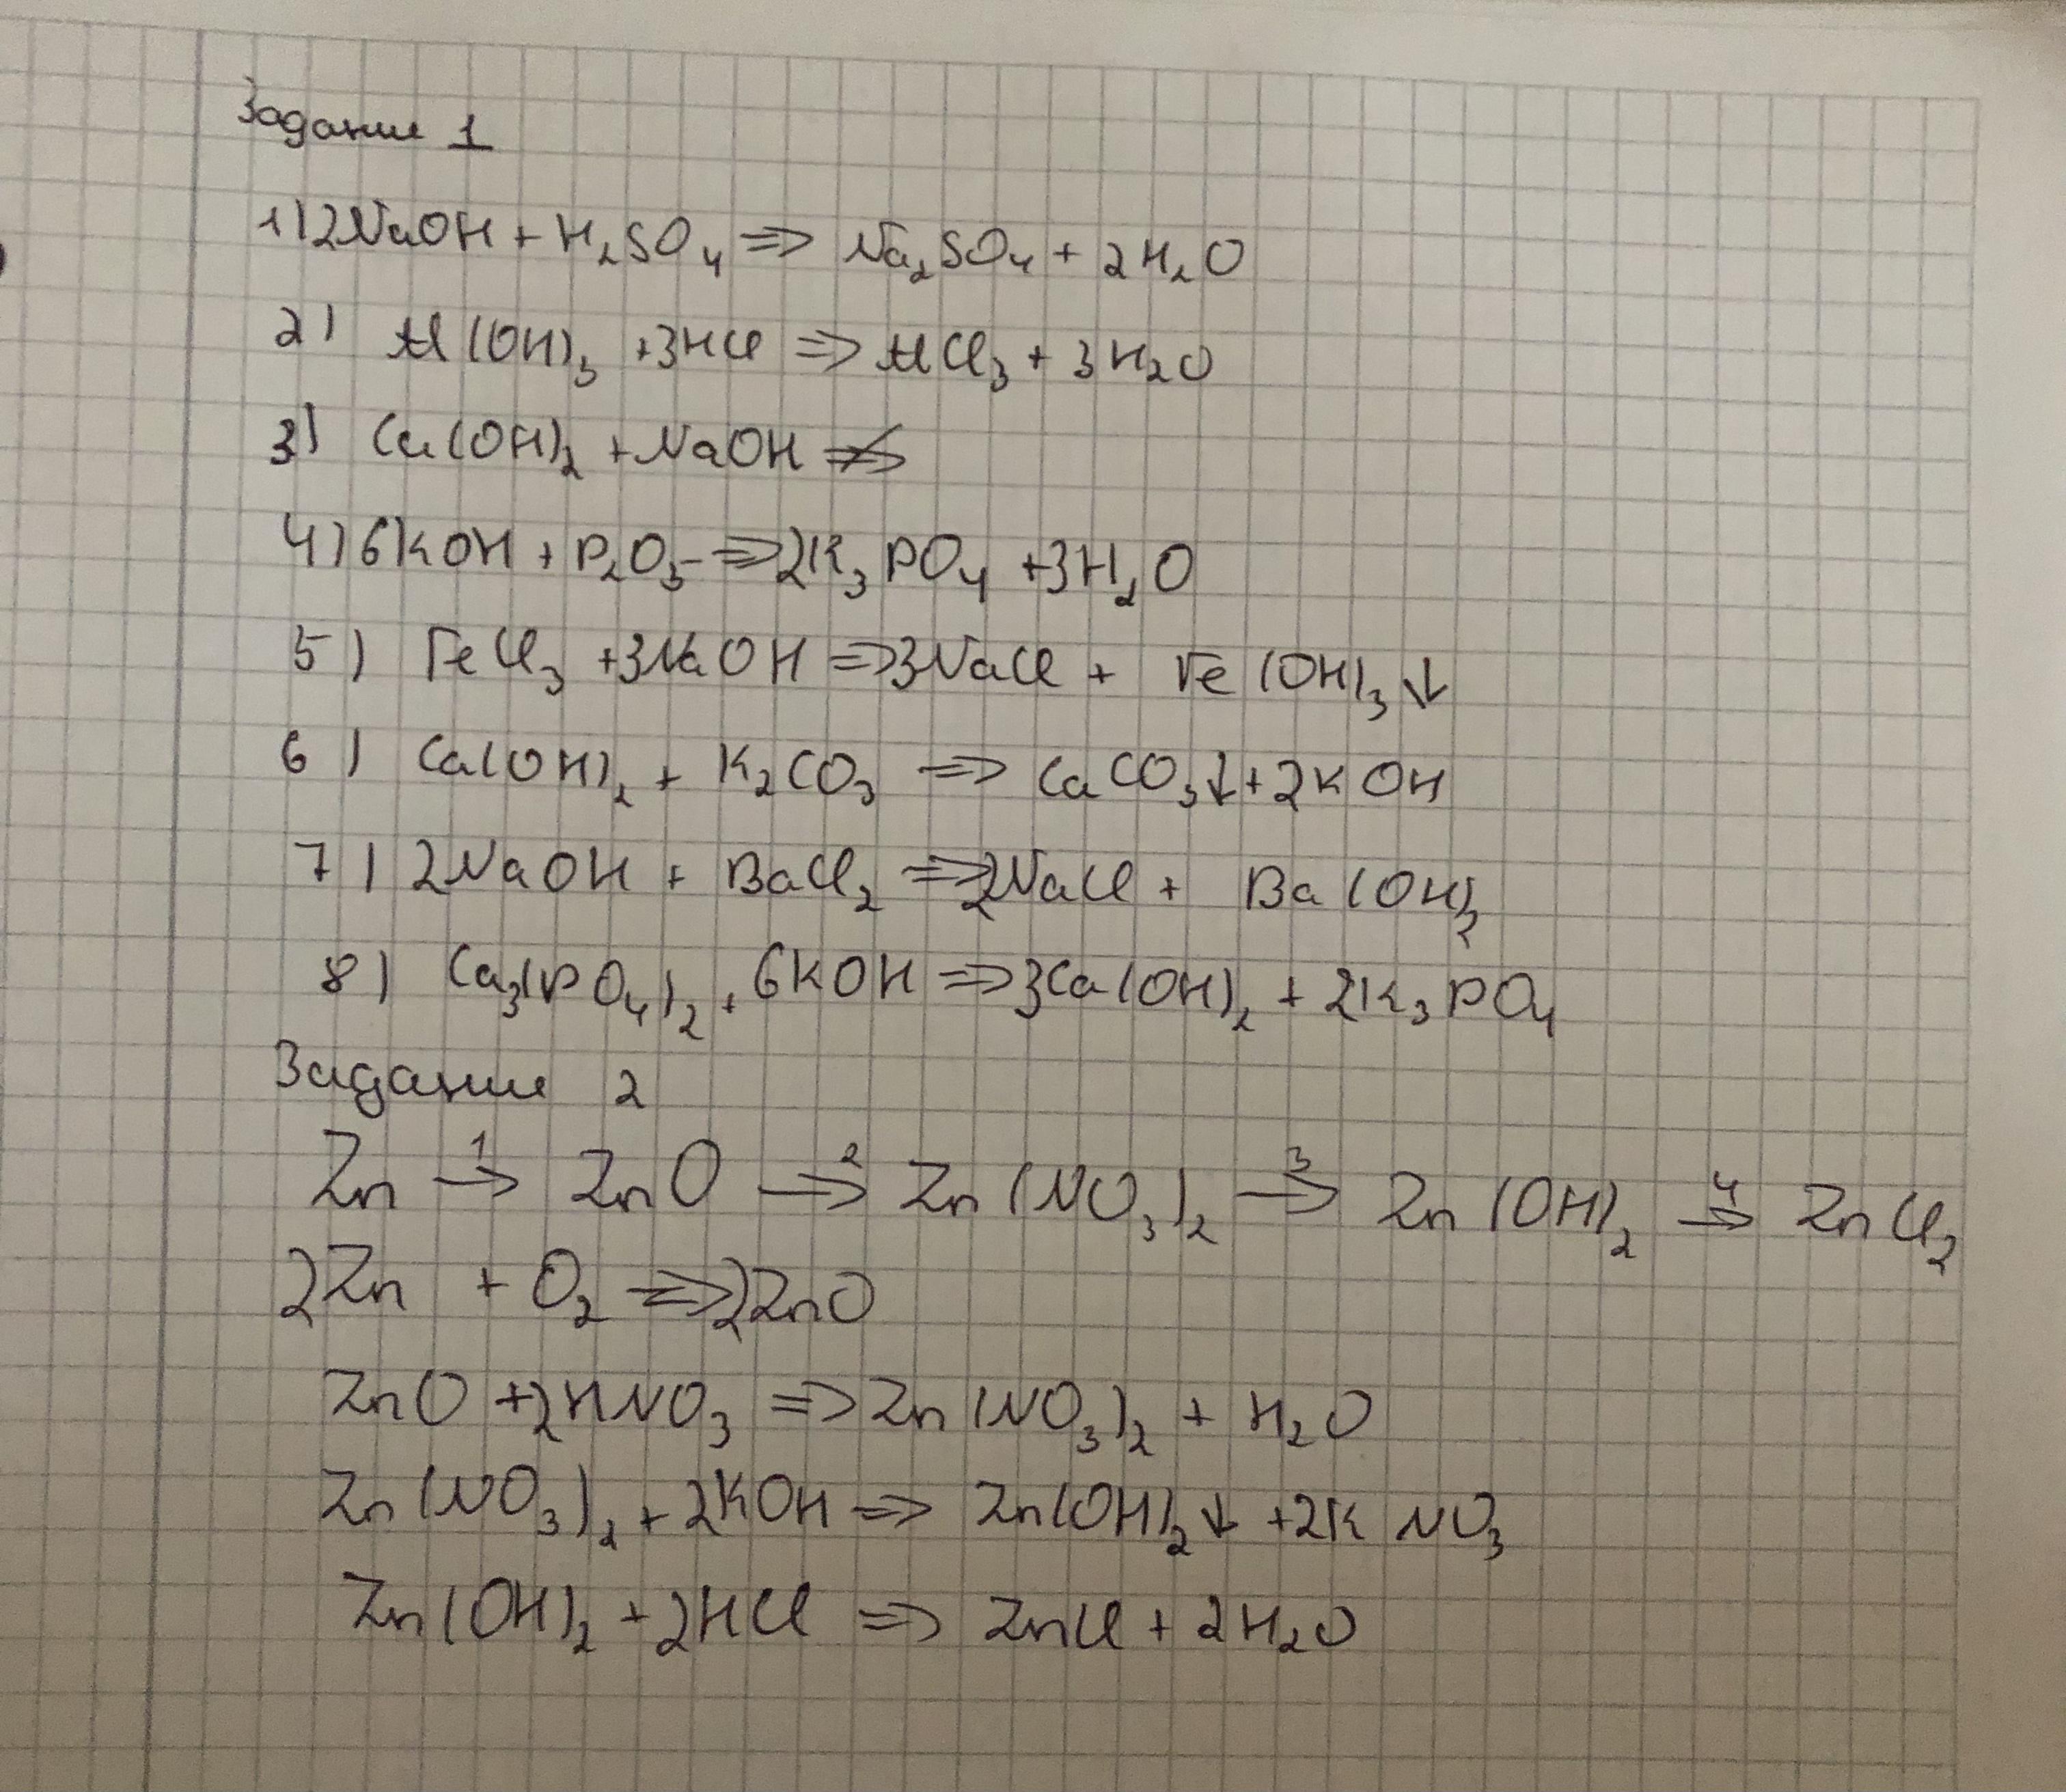 Задание 1
1) 2NaOH + H₂SO₄ ⇒ Na₂SO₄ + 2H₂O
2) Al(OH)₃ + 3HCl ⇒ AlCl₃ + 3H₂O
3) Ca(OH)₂ + NaOH ⇏
4) 6KOH + P₂O₅ ⇒ 2K₃PO₄ + 3H₂O
5) FeCl₃ + 3NaOH ⇒ 3NaCl + Fe(OH)₃↓
6) Ca(OH)₂ + K₂CO₃ ⇒ CaCO₃↓ + 2KOH
7) 2NaOH + BaCl₂ ⇒ 2NaCl + Ba(OH)₂
8) Ca₃(PO₄)₂ + 6KOH ⇒ 3Ca(OH)₂ + 2K₃PO₄
Задание 2
Zn →¹ ZnO ⇒² Zn(NO₃)₂ ⇒³ Zn(OH)₂ ⇒⁴ ZnCl₂
2Zn + O₂ ⇒ 2ZnO
ZnO + 2HNO₃ ⇒ Zn(NO₃)₂ + H₂O
Zn(NO₃)₂ + 2KOH ⇒ Zn(OH)₂↓ + 2KNO₃
Zn(OH)₂ + 2HCl ⇒ ZnCl + 2H₂O